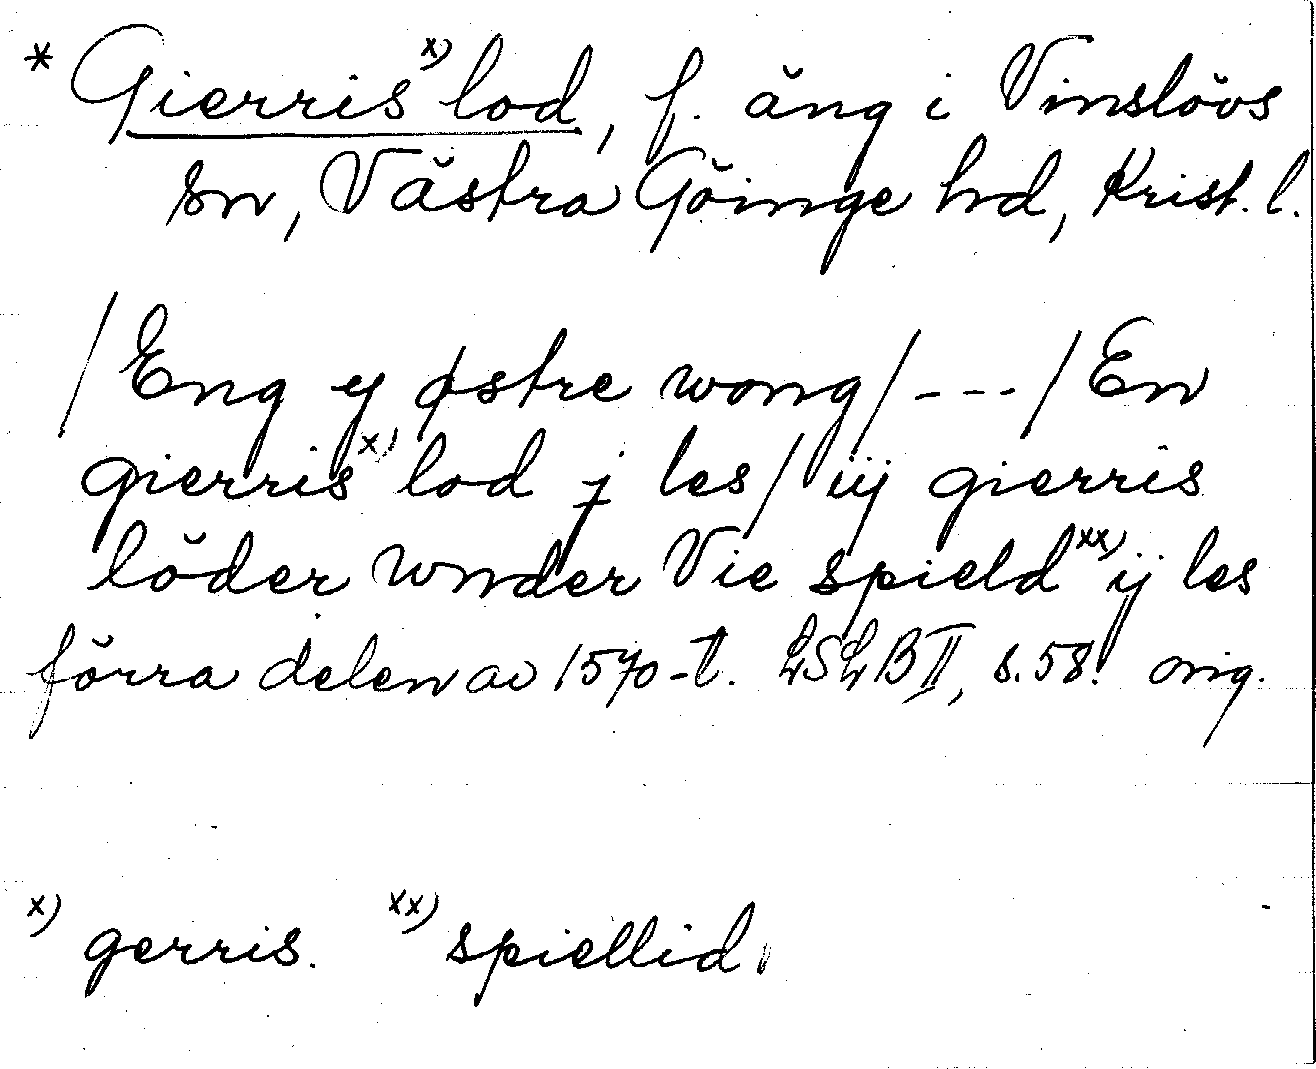 * Gierris x) lod, f. äng i Vinslövs
sn, Västra Göinge hd, Krist. l.
/Eng y østre wong/---/En
gierris x) lod j les/ iij gierris
löder wnder Vie spield xx) ij les
förra delen av 1570-t. LSLB II, s. 58. orig.
x) gerris. xx) spiellid.